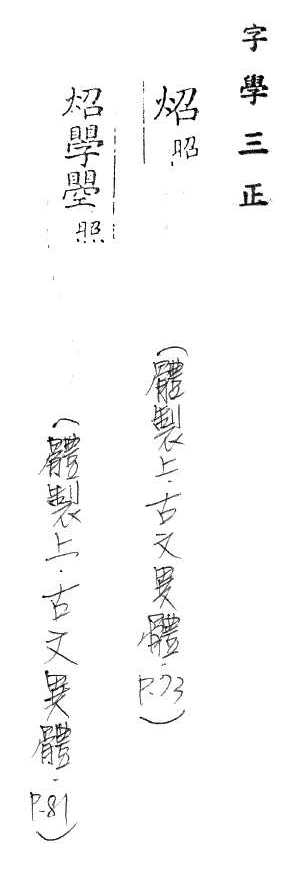 字學三正
炤昭（體製上·古文異體·P.73）
炤曌照（體製上·古文異體·P.81）